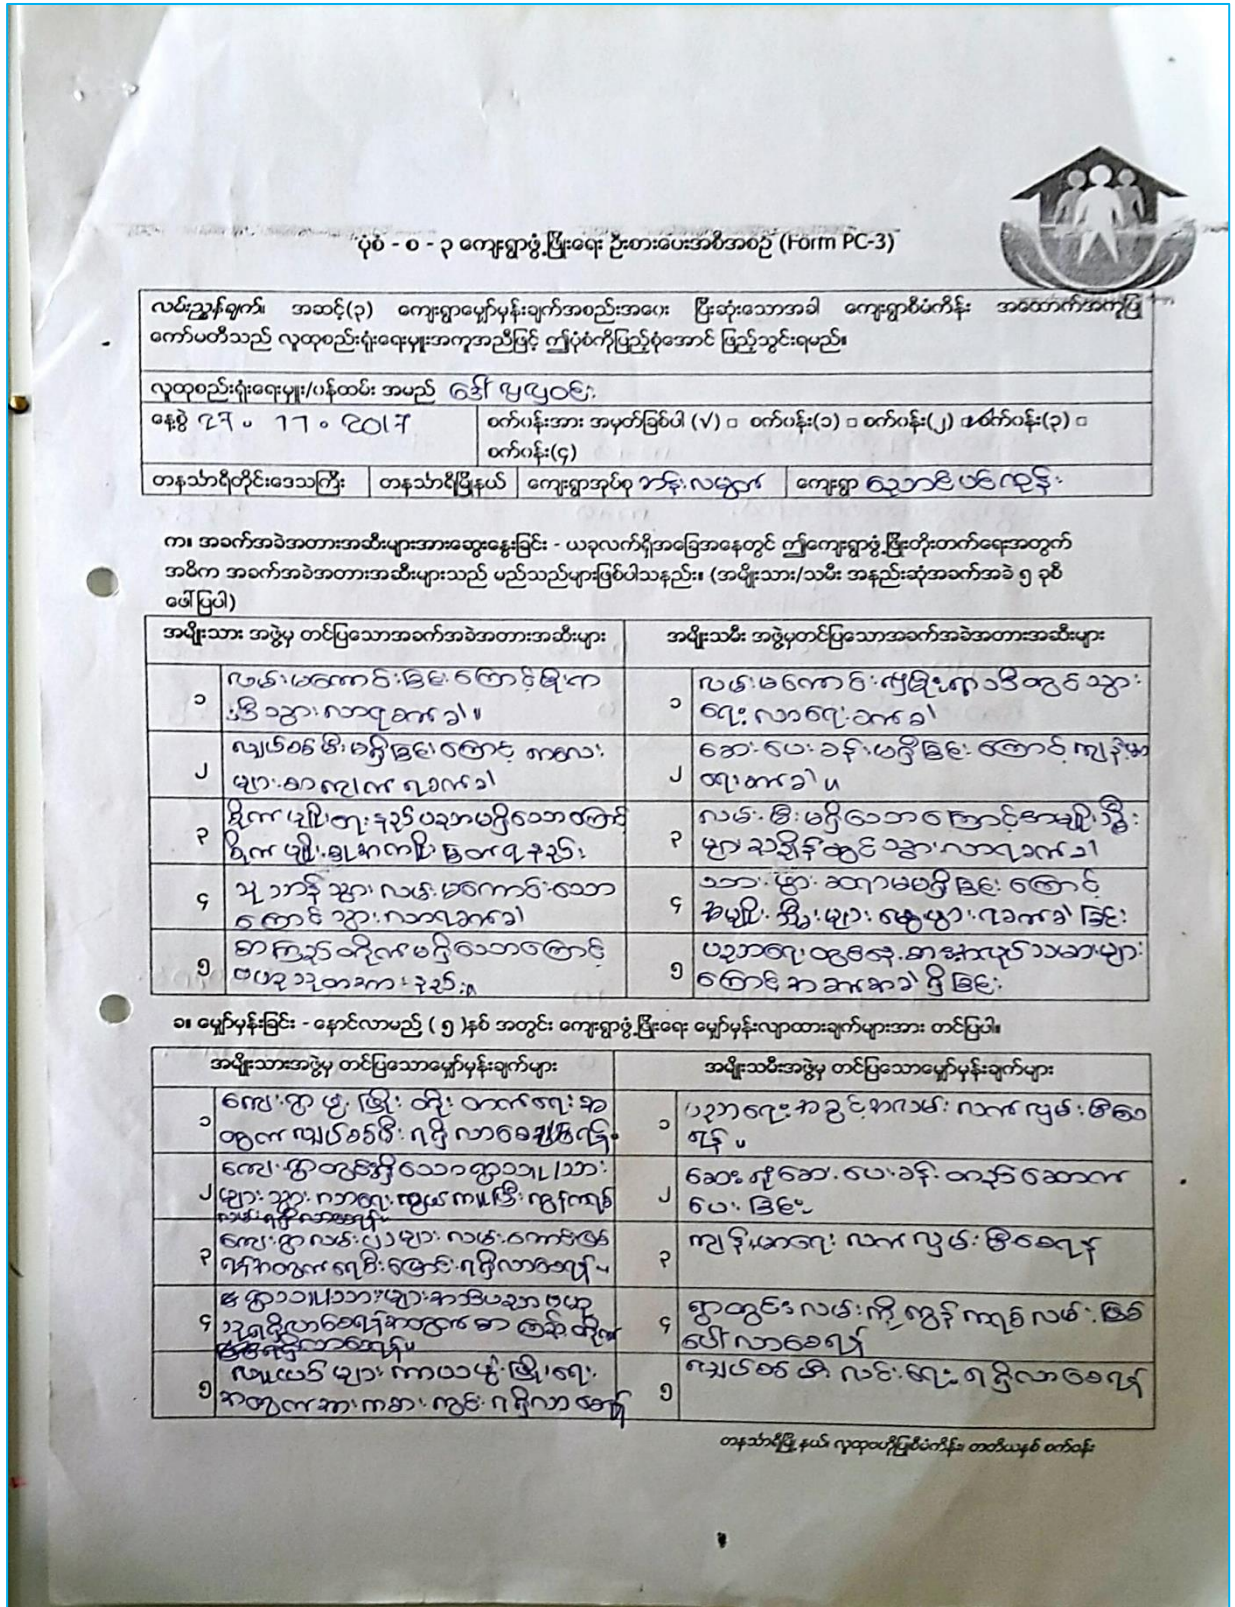 ပုံစံ - စ - ၃ ကျေးရွာဖွံ့ဖြိုးရေး ဦးစားပေးအစီအစဉ် (Form PC-3)
လမ်းညွှန်ချက်။ အဆင့်(၃) ကျေးရွာမျှော်မှန်းချက်အစည်းအဝေး ပြီးဆုံးသောအခါ ကျေးရွာစီမံကိန်း အထောက်အကူပြု
ကော်မတီသည် လူထုစည်းရုံးရေးမှူးအကူအညီဖြင့် ဤပုံစံကိုပြည့်စုံအောင် ဖြည့်သွင်းရမည်။
လူထုစည်းရုံးရေးမှူး/ဝန်ထမ်း အမည် ဒေါ်
နေ့စွဲ ၁၇. ၁၁. ၂၀၁၇ စက်ဝန်းအား အမှတ်ခြစ်ပါ (√) □ စက်ဝန်း(၁) □ စက်ဝန်း(၂) စက်ဝန်း(၃) □
စက်ဝန်း(၄)
တနင်္သာရီတိုင်းဒေသကြီး တနင်္သာရီမြို့နယ် ကျေးရွာအုပ်စု ဘန်းလမွတ် ကျေးရွာ ညောင်ပင်ကုန်း
က။ အခက်အခဲအတားအဆီးများအားဆွေးနွေးခြင်း - ယခုလက်ရှိအခြေအနေတွင် ဤကျေးရွာဖွံ့ဖြိုးတိုးတက်ရေးအတွက်
အဓိက အခက်အခဲအတားအဆီးများသည် မည်သည်များဖြစ်ပါသနည်း။ (အမျိုးသား/သမီး အနည်းဆုံအခက်အခဲ ၅ ခုစီ
ဖေါ်ပြပါ)
အမျိုးသား အဖွဲ့မှ တင်ပြသောအခက်အခဲအတားအဆီးများ အမျိုးသမီး အဖွဲ့မှတင်ပြသောအခက်အခဲအတားအဆီးများ
၁ လမ်းမကောင်းခြင်းကြောင့်မိုးကာ
သွားလာရခက်ခဲ။
၁ လမ်းမကောင်း၍မိုးရာသီတွင်သွား
ရေးလာရေးခက်ခဲ
၂ လျှပ်စစ်မီးမရှိခြင်းကြောင့် ကလေး
များစာကျက်ရခက်ခဲ
၂ ဆေးပေးခန်းမရှိခြင်းကြောင့်ကျန်းမာ
ရေးခက်ခဲ။
၃ စိုက်ပျိုးရေးနည်းပညာမရှိသောကြောင့်
စိုက်ပျိုး
၃ လမ်းမီးမရှိသောကြောင့်အမျိုးသမီး
များညချိန်တွင်သွားလာရခက်ခဲ
၄ သုဿာန်သွားလမ်းမကောင်းသော
ကြောင့်သွားလာရခက်ခဲ
၄ သားဖွားဆရာမမရှိခြင်းကြောင့်
အမျိုးသမီးများမွေးဖွားရခက်ခဲခြင်း
၅ စာကြည့်တိုက်မရှိသောကြောင့်
ဗဟုသုတအားနည်း။
၅ ပညာရေးတွင်
ကြောင့်အခက်အခဲရှိခြင်း
ခ။ မျှော်မှန်းခြင်း - နောင်လာမည့် (၅)နှစ် အတွင်း ကျေးရွာဖွံ့ဖြိုးရေး မျှော်မှန်းလျာထားချက်များအား တင်ပြပါ။
အမျိုးသားအဖွဲ့မှ တင်ပြသောမျှော်မှန်းချက်များ အမျိုးသမီးအဖွဲ့မှ တင်ပြသောမျှော်မှန်းချက်များ
၁ ကျေးရွာဖွံ့ဖြိုးတိုးတက်ရေးအ
တွက်လျှပ်စစ်မီးရရှိလာစေရန်။
၁ ပညာရေးအခွင့်အလမ်းလက်လှမ်းမီစေ
ရန်။
၂ ကျေးရွာတွင်ရှိသောရွာသူ/သား
များသွားလာရေးလွယ်ကူပြီးကွန်ကရစ်
လမ်းရရှိလာစေရန်။
၂ ဆေးရုံဆေးပေးခန်းတည်ဆောက်
ပေးခြင်း
၃ ကျေးရွာလမ်းပြင်များလမ်းကောင်းဖြစ်
ရန်အတွက်ရေစီးမြောင်းရရှိလာစေရန်။
၃ ကျန်းမာရေးလက်လှမ်းမီစေရန်
၄ ရွာသူ/သားများအသိပညာဗဟု
သုတရရှိလာစေရန်အတွက်စာကြည့်တိုက်
၄ ရွာတွင်းလမ်းကိုကွန်ကရစ်လမ်းဖြစ်
ပေါ်လာစေရန်
၅ လူငယ်များကာယဖွံ့ဖြိုးရေး
အတွက်အားကစားကွင်းရရှိလာစေရန်
၅ လျှပ်စစ်မီးလင်းရေးရရှိလာစေရန်
တနင်္သာရီမြို့နယ်၊ လူထုဗဟိုပြုစီမံကိန်း၊ တတိယနှစ် စက်ဝန်း